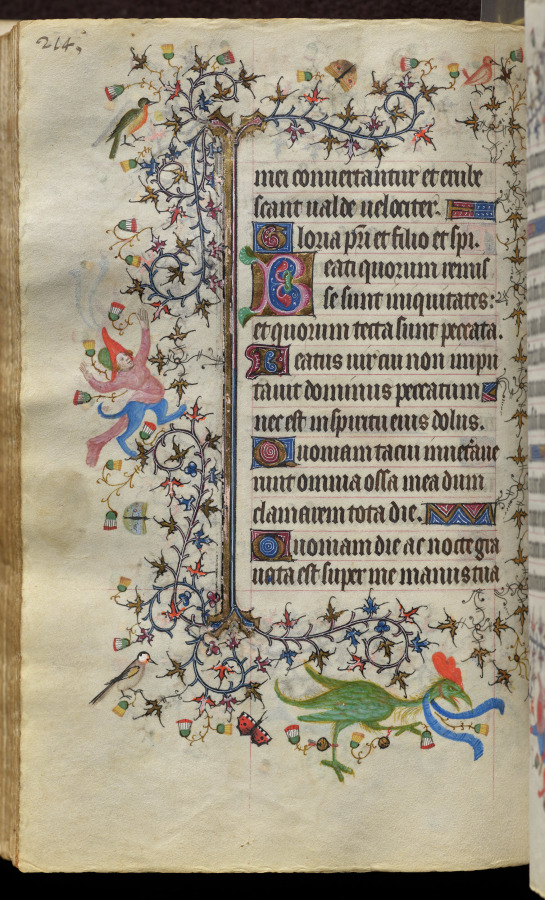 214,
mei conuertantur et erube
scant ualde uelociter.
Gloria pr̃i et filio et spi.
Beati quorum remis
se sunt iniquitates:
et quorum tecta sunt peccata.
Beatus uir cui non impu
tauit dominus peccatum
nec est in spiritu eius dolus.
Quoniam tacui inueteraue
runt omnia ossa mea dum
clamarem tota die.
Quoniam die ac nocte gra
uata est super me manus tua